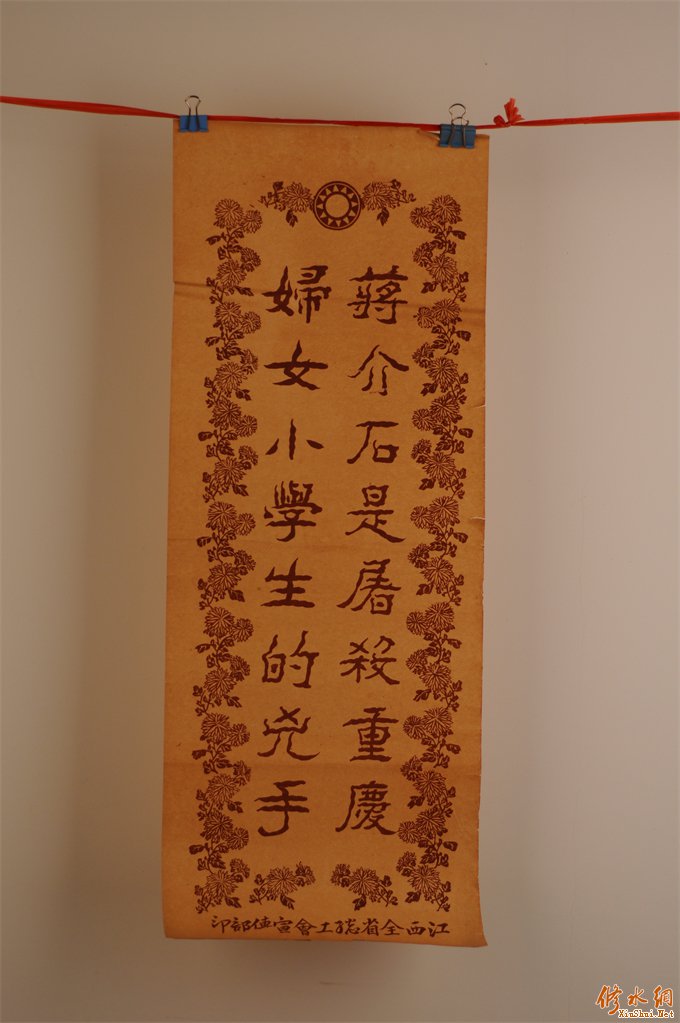 蔣介石是屠殺重慶
婦女小學生的兇手
江西全省总工會宣傳部印
修水網
XiuShui.Net